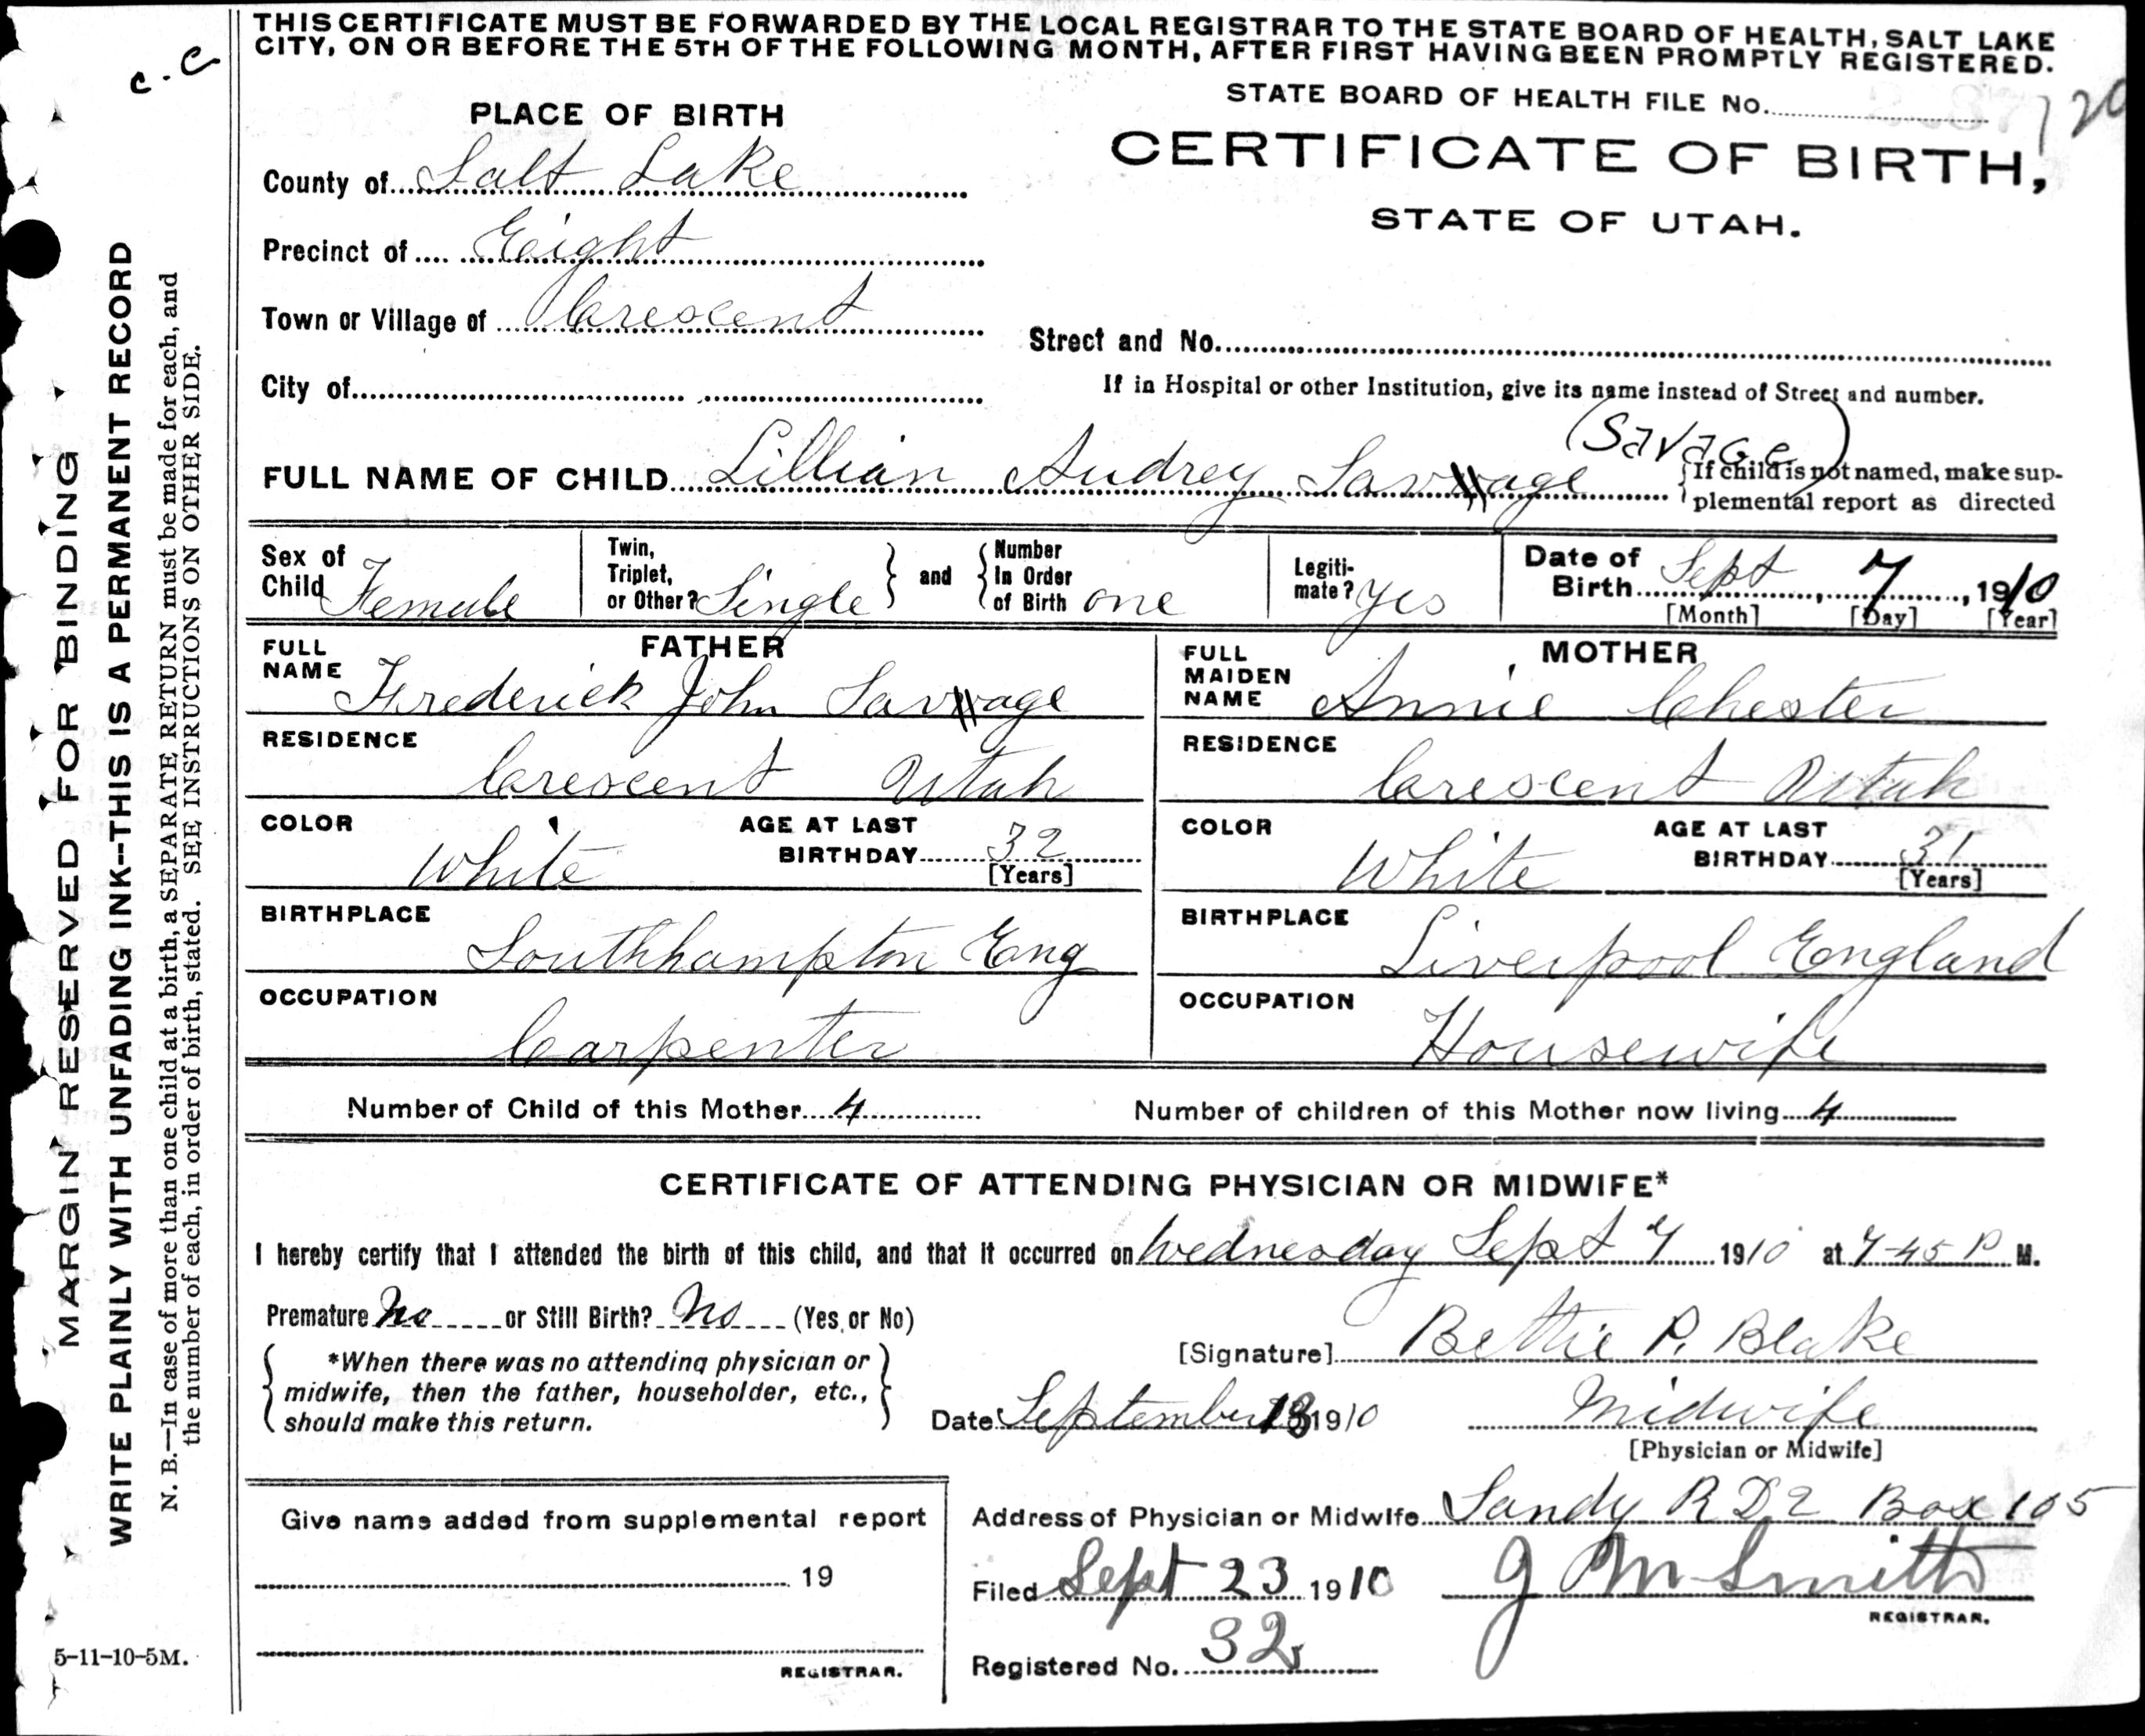 THIS CERTIFICATE MUST BE FORWARDED BY THE LOCAL REGISTRAR TO THE STATE BOARD OF HEALTH, SALT LAKE
CITY, ON OR BEFORE THE 5TH OF THE FOLLOWING MONTH, AFTER FIRST HAVING BEEN PROMPTLY REGISTERED.
c.c
STATE BOARD OF HEALTH FILE No. 20
PLACE OF BIRTH
CERTIFICATE OF BIRTH,
STATE OF UTAH.
County of Salt Lake
Precinct of Eight
Town or Village of Crescent
Street and No.
City of
If in Hospital or other Institution, give its name instead of Street and number.
(Savage)
FULL NAME OF CHILD Lillian Audrey Savage
If child is not named, make sup-
plemental report as directed
Sex of Child Female
Twin, Triplet, or Other? Single and Number In Order of Birth one
Legiti-
mate? yes
Date of Birth Sept 7, 1910
[Month] [Day] [Year]
FATHER
FULL NAME Frederick John Savage
RESIDENCE
Crescent Utah
COLOR White AGE AT LAST BIRTHDAY 32
[Years]
BIRTHPLACE
Southhampton Eng
OCCUPATION
Carpenter
MOTHER
FULL MAIDEN NAME Annie Chester
RESIDENCE
Crescent Utah
COLOR White AGE AT LAST BIRTHDAY 31
[Years]
BIRTHPLACE
Liverpool England
OCCUPATION
Housewife
Number of Child of this Mother 4 Number of children of this Mother now living 4
CERTIFICATE OF ATTENDING PHYSICIAN OR MIDWIFE*
I hereby certify that I attended the birth of this child, and that it occurred on Wednesday Sept 7 1910 at 7-45 P M.
Premature No or Still Birth? No (Yes or No)
[Signature] Bettie P. Blake
*When there was no attending physician or
midwife, then the father, householder, etc.,
should make this return.
Date September 13 1910 Midwife
[Physician or Midwife]
Give name added from supplemental report
19
REGISTRAR.
Address of Physician or Midwife Sandy R D 2 Box 105
Filed Sept 23 1910 J M Smith
REGISTRAR.
Registered No. 32
MARGIN RESERVED FOR BINDING
WRITE PLAINLY WITH UNFADING INK--THIS IS A PERMANENT RECORD
N. B.—In case of more than one child at a birth, a SEPARATE RETURN must be made for each, and
the number of each, in order of birth, stated. SEE INSTRUCTIONS ON OTHER SIDE.
5-11-10-5M.